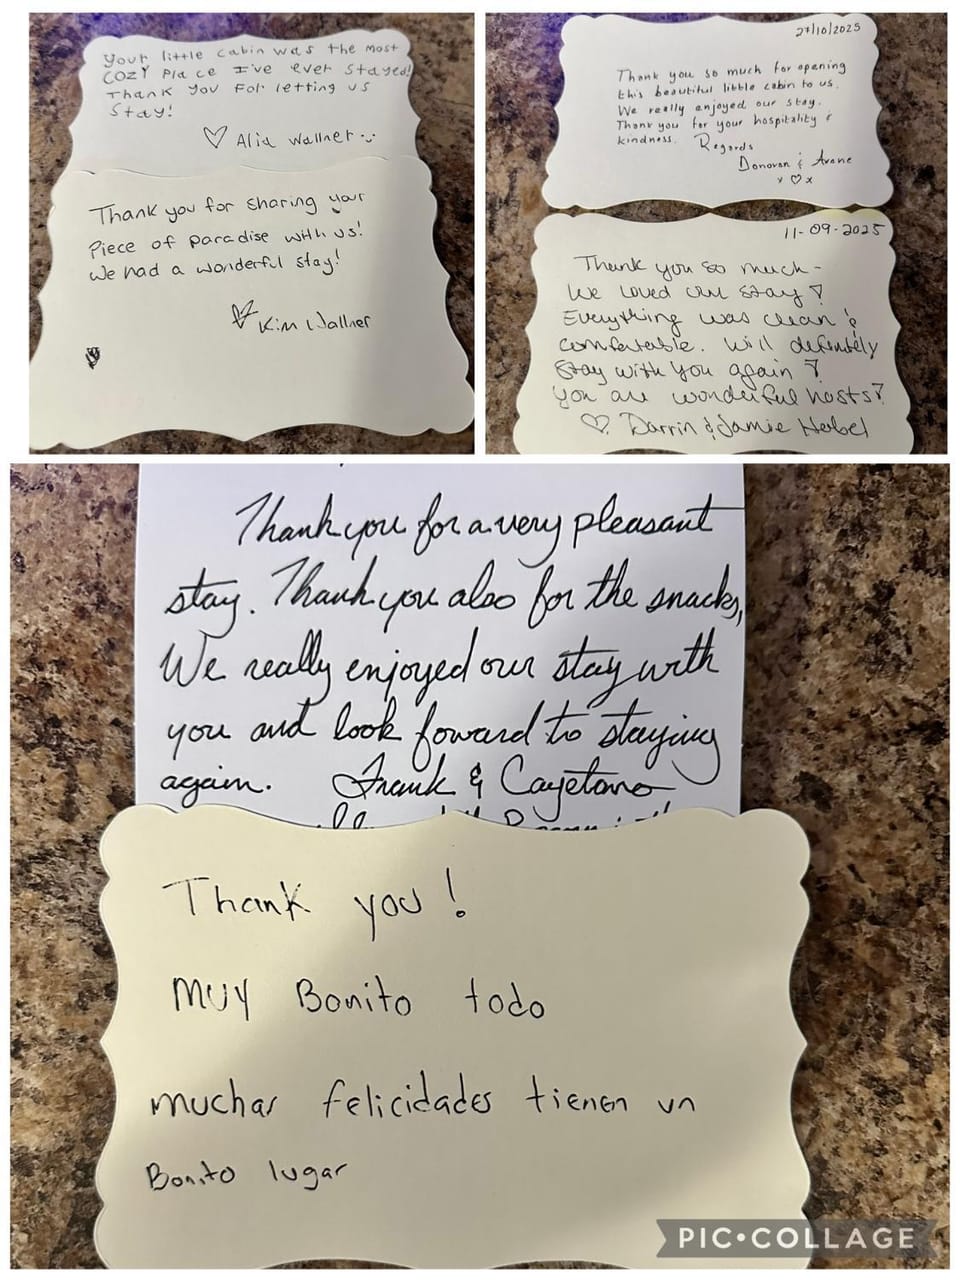 Your little cabin was the most
COZY Place I've ever stayed!
Thank you For letting us
Stay!
♡ Alia Wallner
Thank you for sharing your
Piece of paradise with us!
We had a wonderful stay!
♡ Kim Wallner
27/10/2025
Thank you so much for opening
this beautiful little cabin to us.
We really enjoyed our stay.
Thank you for your hospitality &
kindness. Regards
Donovan & Avane
x ♡ x
11-09-2025
Thank you so much -
We loved our stay!
Everything was clean &
comfortable. Will definitely
stay with you again!
You are wonderful hosts!
♡ Darrin & Jamie Hebel
Thank you for a very pleasant
stay. Thank you also for the snacks,
We really enjoyed our stay with
you and look foward to staying
again. Frank & Cayetano
Thank you!
MUY Bonito todo
muchas felicidades tienen un
Bonito lugar
PIC•COLLAGE